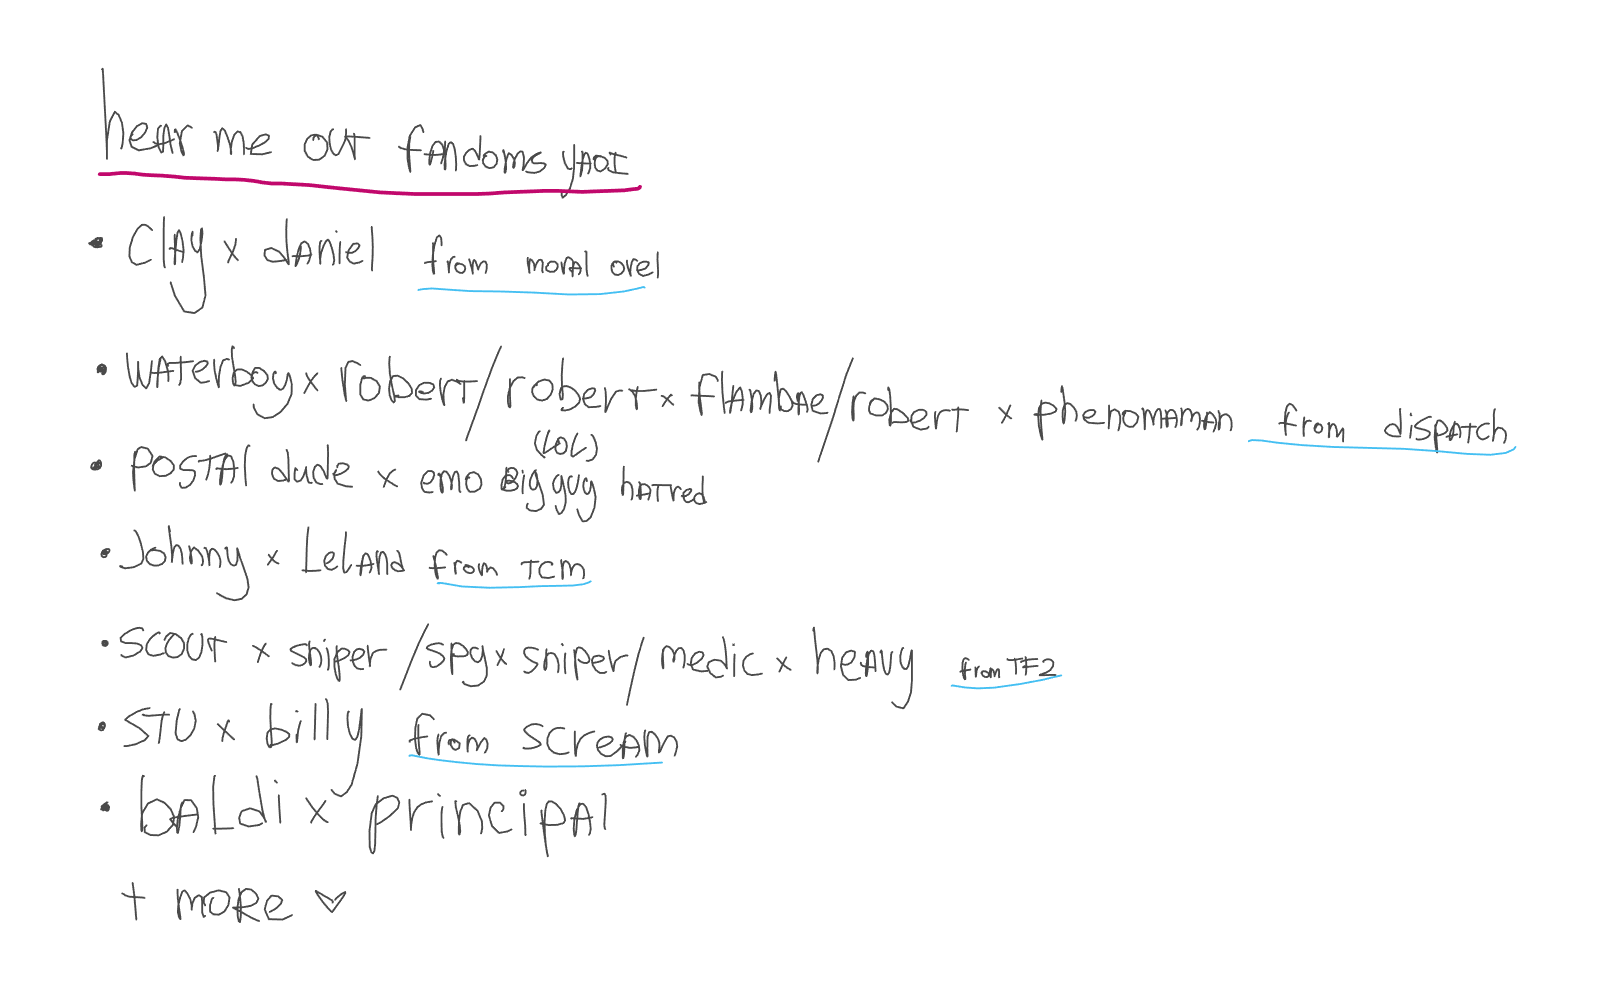 hear me out fandoms yaoi
• Clay x daniel from moral orel
• Waterboy x robert/robert x flambae/robert x phenomaman from dispatch
(LOL)
• POSTAl dude x emo Big guy hatred
• Johnny x Leland from TCM
• SCOUT x sniper /spy x sniper/ medic x heavy from TF2
• STU x billy from scream
• baldi x principal
+ more